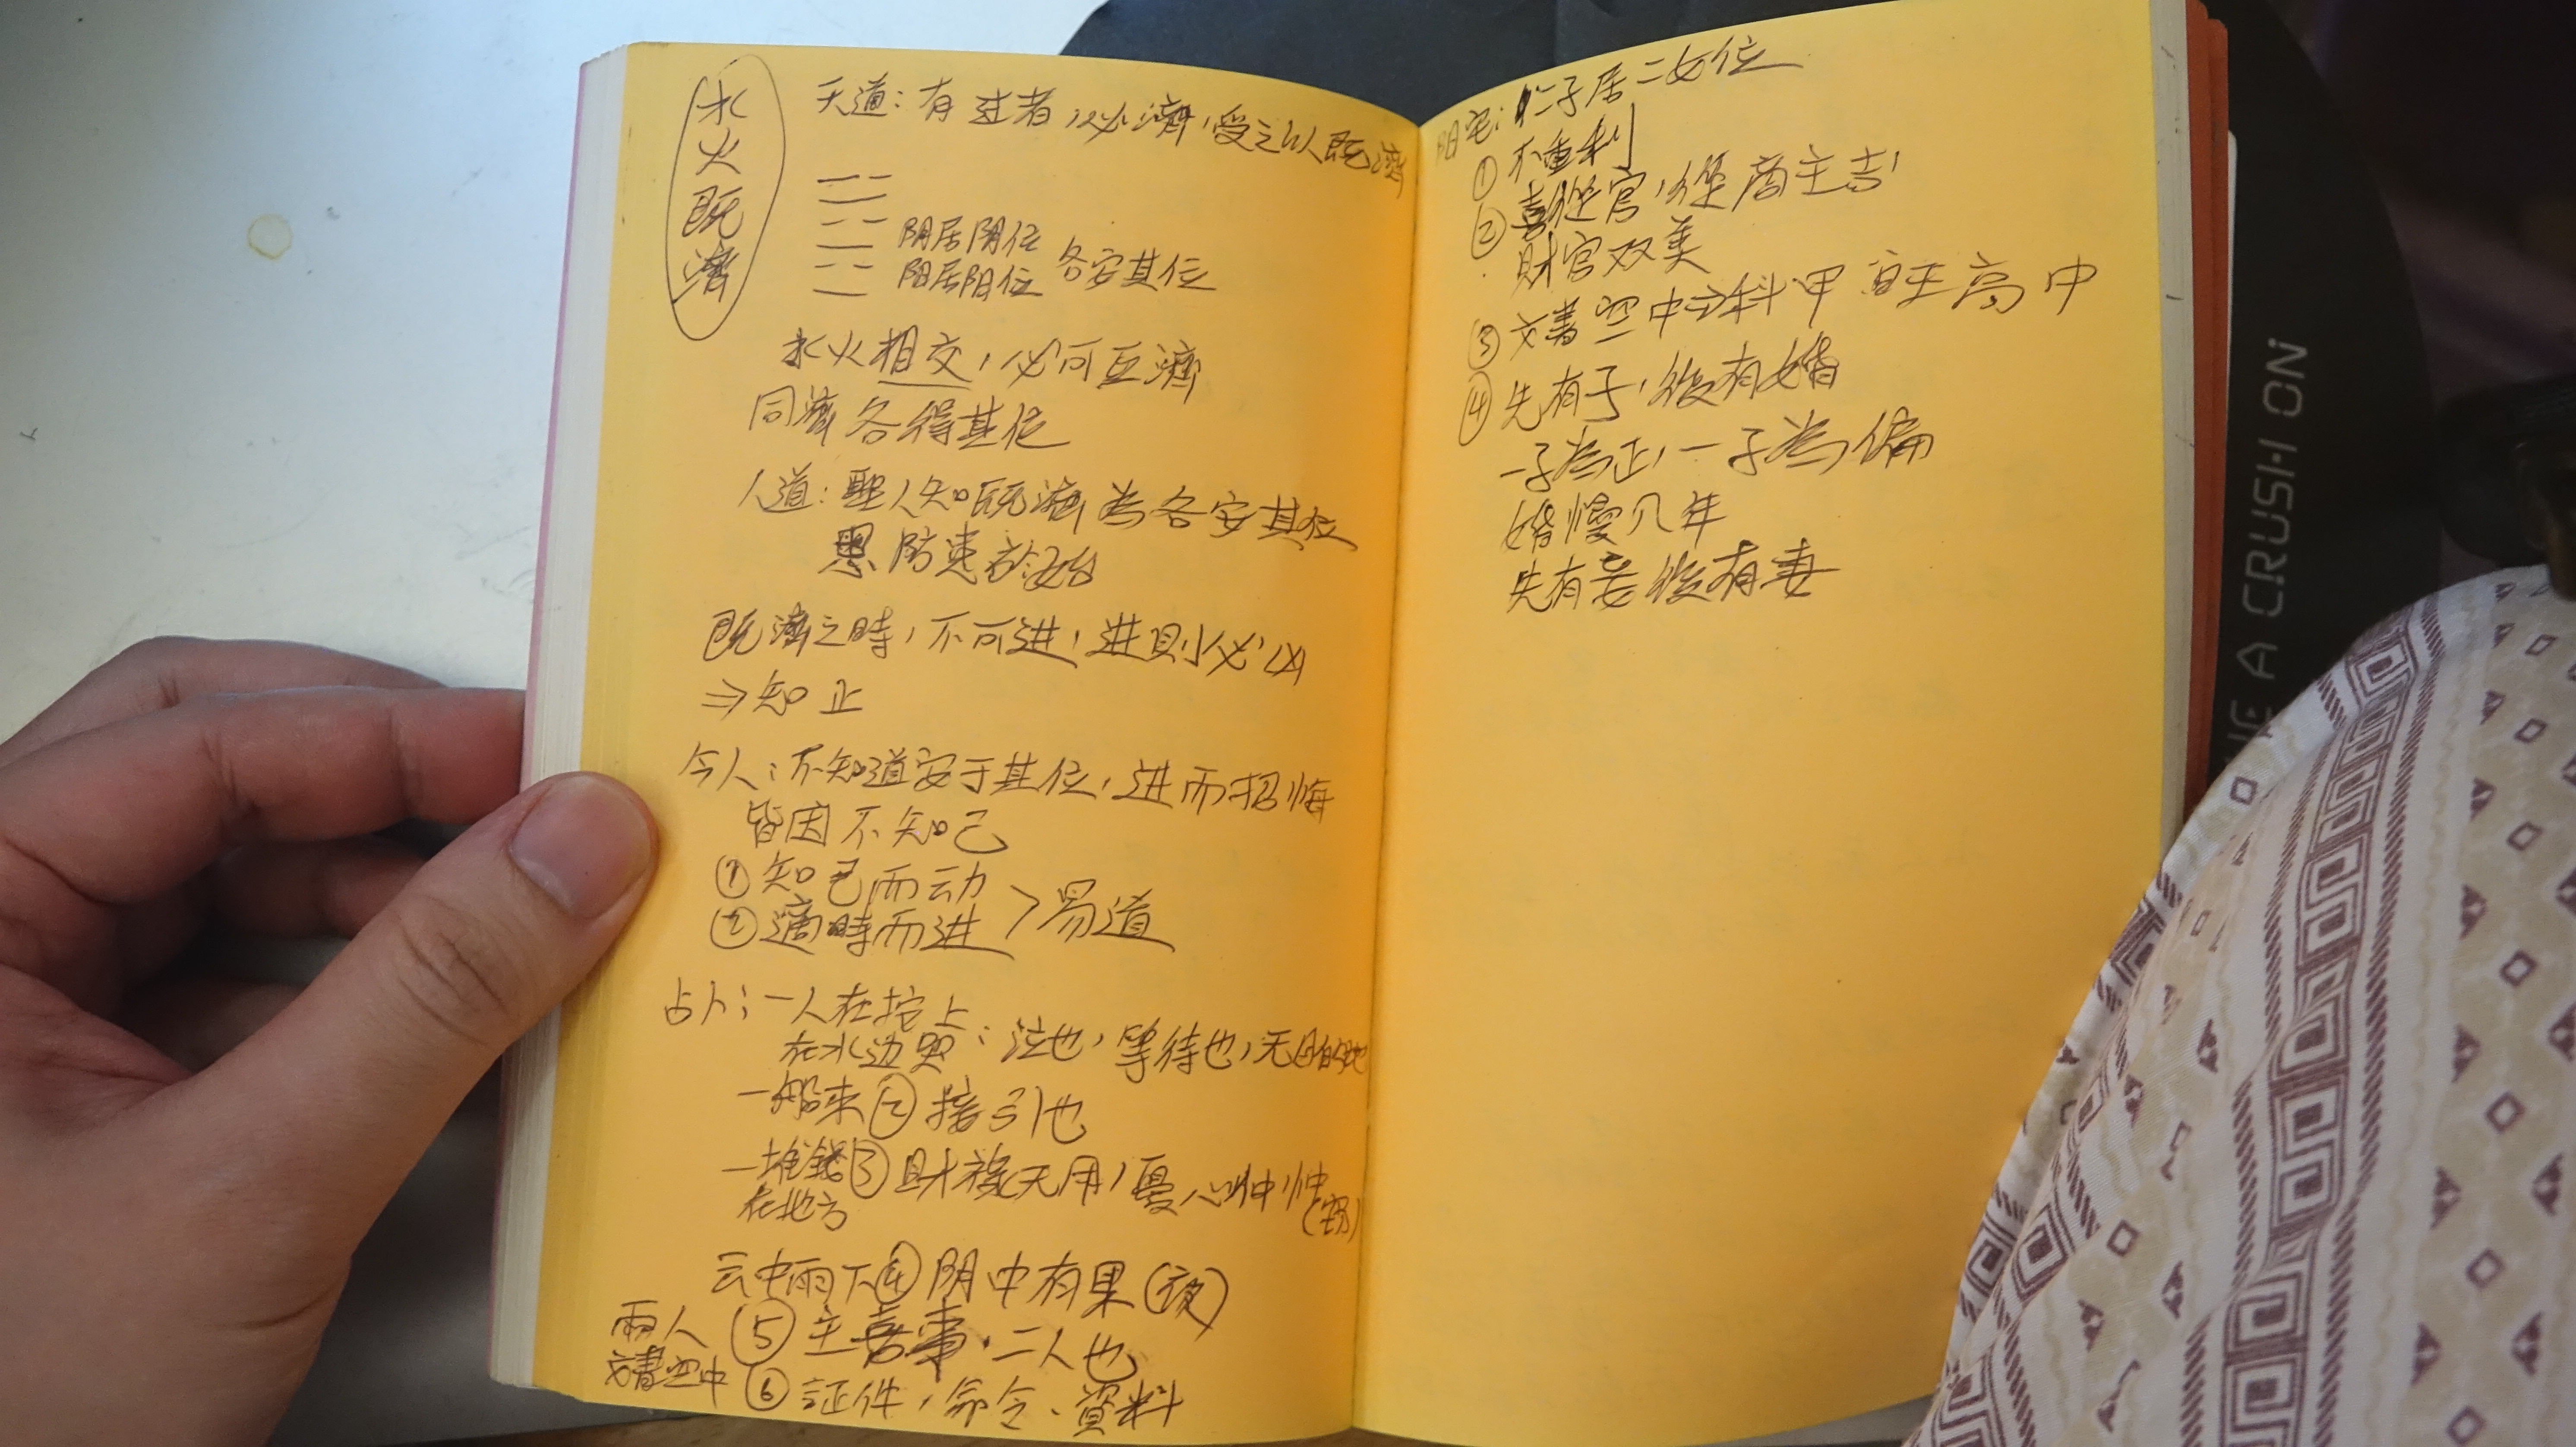 水火既濟
天道：有过者，必濟，受之以既濟
阴居阴位
阳居阳位 各安其位
水火相交，必可互濟
同濟 各得其位
人道：聖人知既濟为各安其位
思防患於始
既濟之時，不可进，进則必凶
⇒知止
今人：不知道安于其位，进而招悔
皆因不知己
①知己而动
②適時而进 > 易道
占卜：一人在坨上
在水边哭：泣也，等待也，无目的地
一船来② 接引也
一堆錢③財祿无用，憂心忡忡
在地方
云中雨下④阴中有果(夜)
兩人 ⑤主喜事，二人也
文書空中 ⑥証件，命令、資料
阳宅：仁子居二女位
①不重利
②喜從官，經商主吉
財官双美
③文書空中 科甲 高中
④先有子，後有婚
一子为正，一子为偏
婚慢几年
先有妾後有妻
E A CRUSH ON